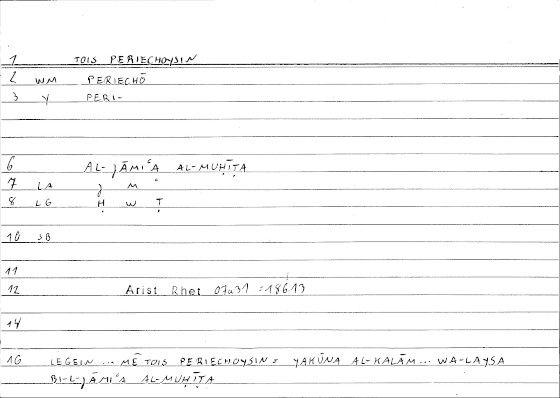 1 TOIS PERIECHOYSIN
2 WM PERIECHŌ
3 Y PERI-
6 AL-ǧĀMIʿA AL-MUḤĪṬA
7 LA ǧ M ʿ
8 LG Ḥ W Ṭ
10 SB
11
12 Arist Rhet 07a31 = 186.13
14
16 LEGEIN ... MĒ TOIS PERIECHOYSIN = YAKŪNA AL-KALĀM ... WA-LAYSA
BI-L-ǧĀMIʿA AL-MUḤĪṬA